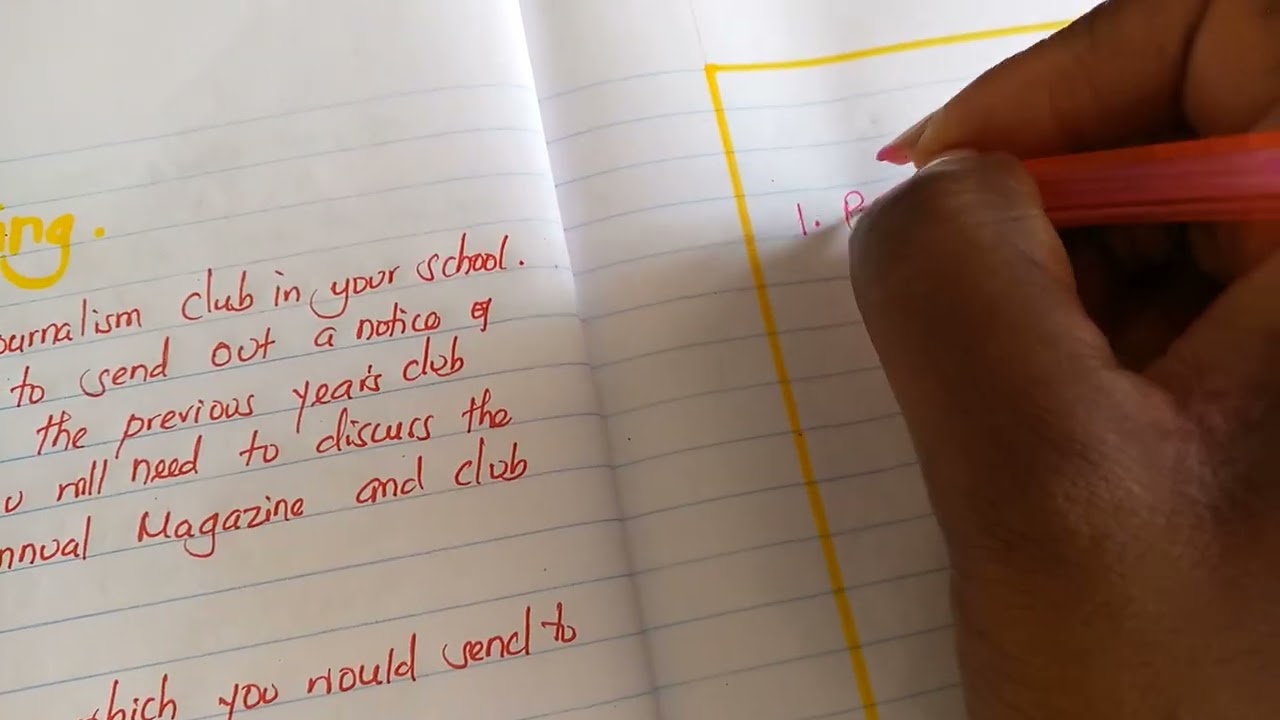 ing.
ournalism club in your school.
to send out a notice of
the previous year's club
u will need to discuss the
nnual Magazine and club
which you would send to
1. P